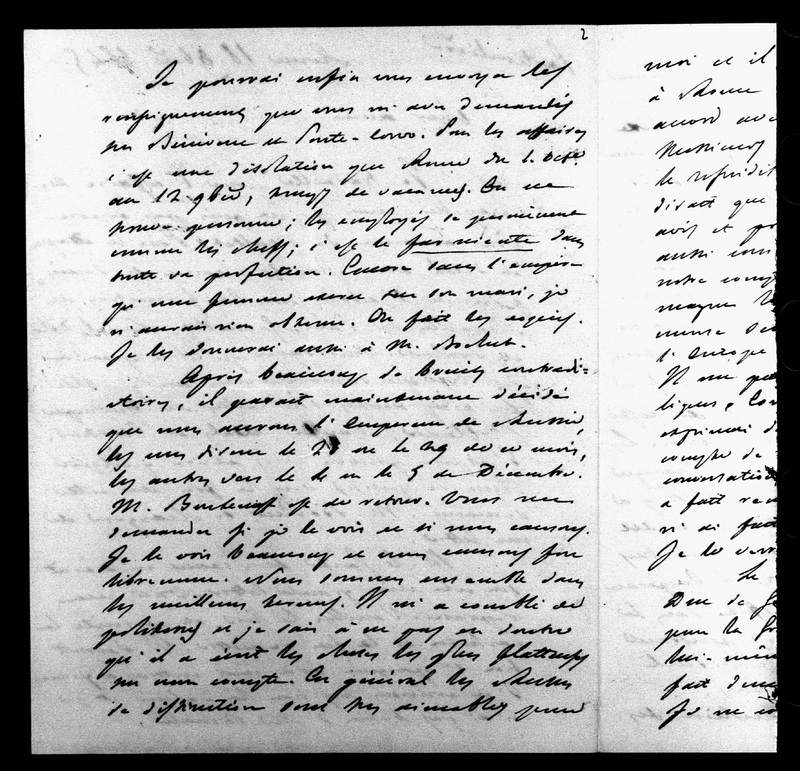 2
Je pourrai enfin vous envoyer les
renseignemens que vous m'avez demandés
sur Bénévent et Ponte-Corvo. Pour les affaires
c'est une désolation que Rome du 1. Oct.
au 12 9bre, temps de vacances. On ne
trouve personne; les employés se promènent
comme les chefs; c'est le far niente dans
toute sa perfection. Encore sans l'empire
qu'une femme exerce sur son mari, je
n'aurais rien obtenu. On fait les copies.
Je les donnerai aussi à M.
Après beaucoup de bruits contradic-
toires, il parait maintenant décidé
que nous aurons l'Empereur de Russie,
les uns disent le 2 ou le 29 de ce mois,
les autres vers le 4 ou le 5 de Décembre.
M. Boutenieff est de retour. Vous me
demandez si je le vois et si nous causons.
Je le vois beaucoup et nous causons fort
librement. Nous sommes ensemble dans
les meilleurs termes. Il m'a comblé de
politesses et je sais à ne pas en douter
qu'il a écrit les choses les plus flatteuses
sur mon compte. En général les Russes
de distinction sont très aimables pour
moi et il
à Rome
accord avec
le refroidi
disait que
avis et
aussi
notre compt
l'Europe
Il me
exprimai
compte de
conversation
a fait
ni ai fait
Je le verr
Le
Duc de
pour la
lui-même
fait
Je ne